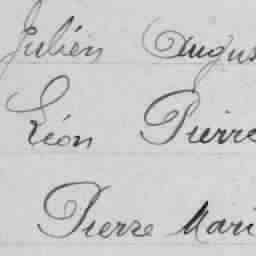 Julien Augus
Léon Pierre
Pierre Mari